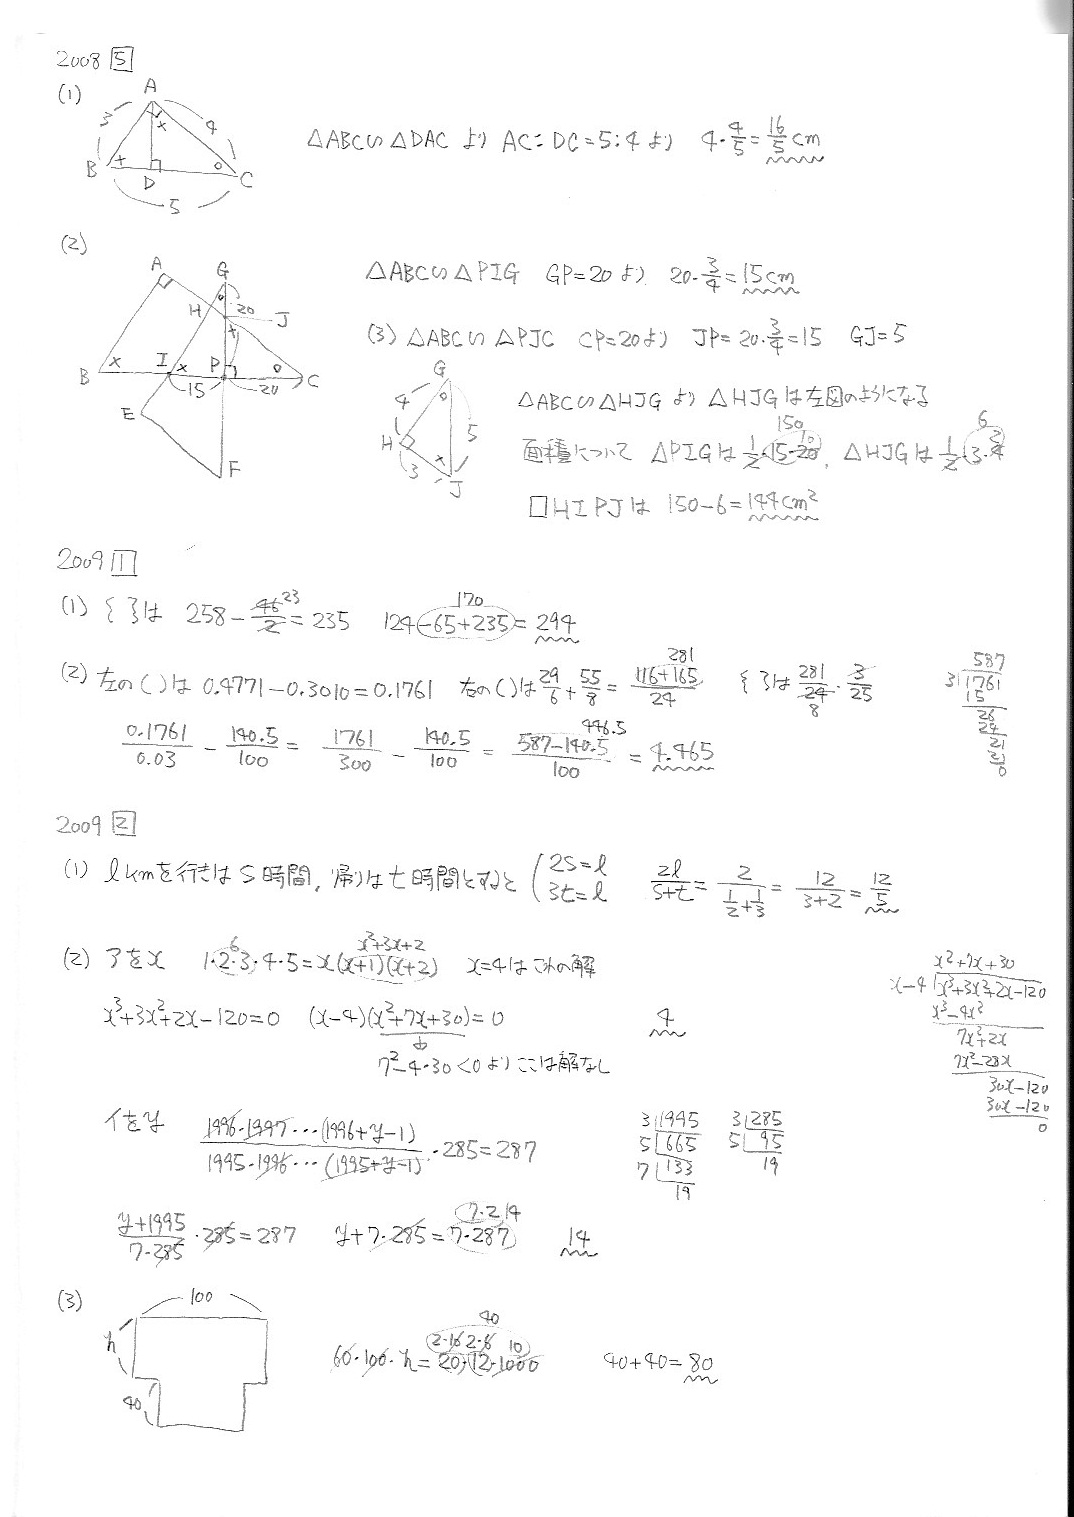 2008 5
(1)
A
3
4
x
x
B
D
C
5
△ABC∽△DAC より AC:DC=5:4より 4・4/5=16/5cm
(2)
A
G
H
20
J
x
B
x
I
x
P
C
15
20
E
F
△ABC∽△PIG GP=20より 20・3/4=15cm
(3) △ABC∽△PJC CP=20より JP=20・3/4=15 GJ=5
G
4
5
H
3
x
J
△ABC∽△HJGより△HJGは左図のようになる
150 10 6 2
面積について △PIGは1/2・15・20, △HJGは1/2・3・4
□HIPJは 150-6=144cm²
2009 1
(1) { }は 258-46/2=235 124-65+235=294
23 170
(2) 左の( )は 0.4771-0.3010=0.1761 右の( )は29/6+55/8=116+165/24 { }は281/24・3/25
281
8
587
3)1761
15
26
24
21
21
0
0.1761/0.03-140.5/100=1761/300-140.5/100=587-140.5/100=4.465
446.5
2009 2
(1) lkmを行きはs時間,帰りはt時間とすると (2s=l 3t=l 2l/s+t=2/1/2+1/3=12/3+2=12/5
(2) アをx 1・2・3・4・5=x(x+1)(x+2) x=4はこれの解
6 x²+3x+2
x³+3x²+2x-120=0 (x-4)(x²+7x+30)=0 4
7²-4・30<0よりここは解なし
x²+7x+30
x-4)x³+3x²+2x-120
x³-4x²
7x²+2x
7x²-28x
30x-120
30x-120
0
イをy 1996・1997…(1996+y-1)/1995・1996…(1995+y-1)・285=287
3)1995
5)665
7)133
19
3)285
5)95
19
y+1995/7・285・285=287 y+7・285=7・287 14
7・2 14
(3)
100
h
40
60・100・h=20・12・1000 40+40=80
40
2・10 2・6 10